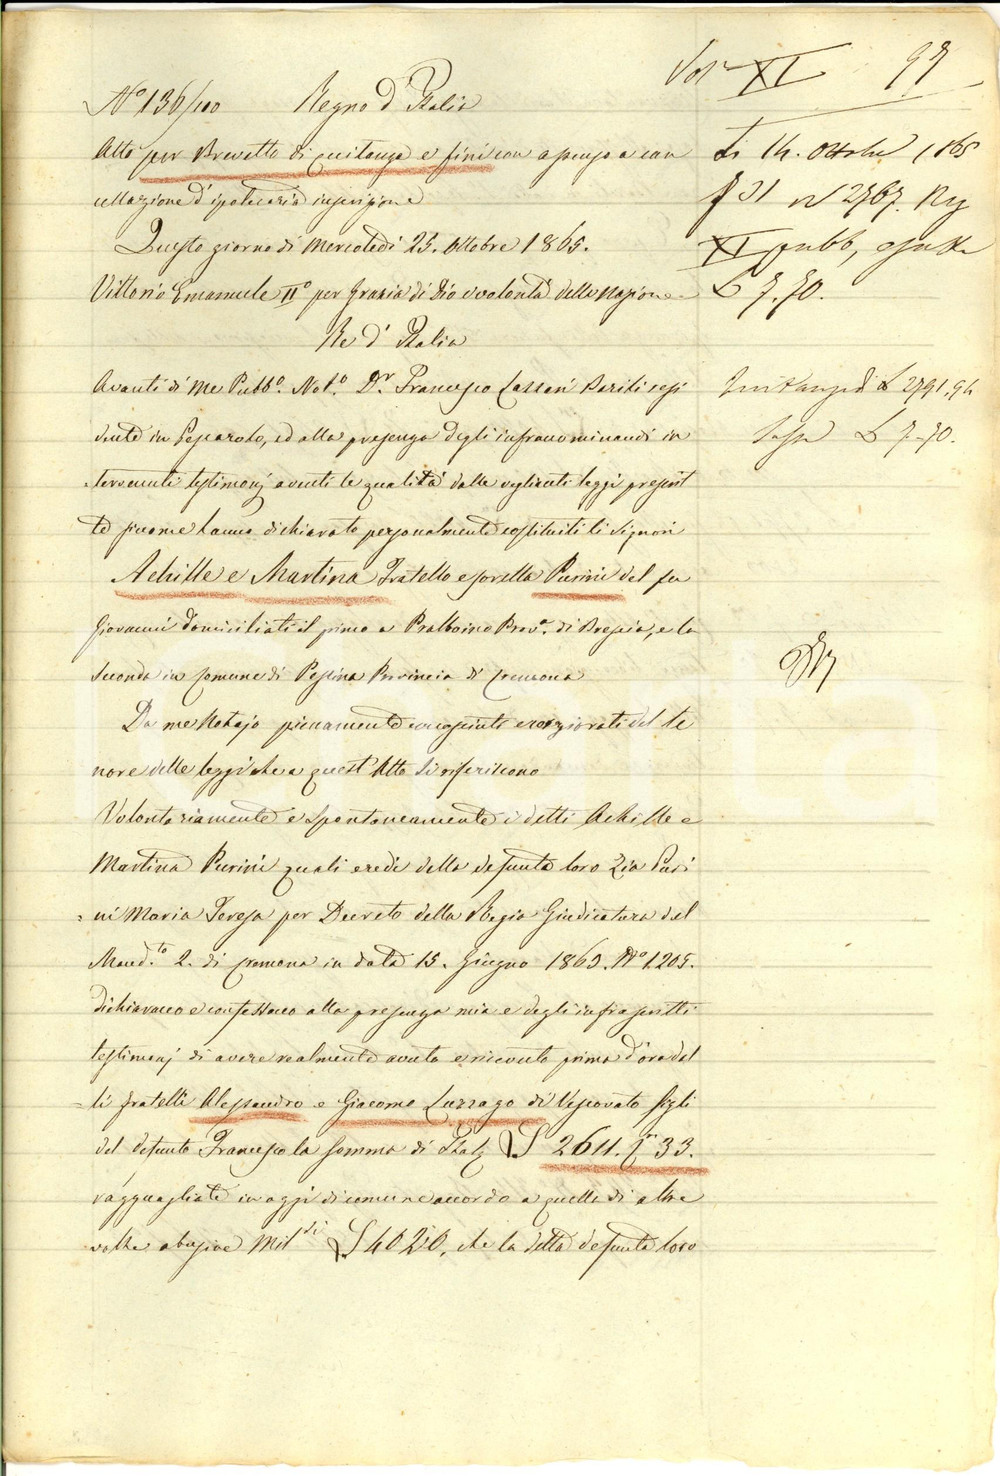 Vol XI 97
N.º 136/100 Regno d'Italia
Atto per Brevetto di quitanza e fini con assenso a can
cellazione d'ipotecaria inscrizione
Questo giorno di Mercoledì 25. Ottobre 1865.
Vittorio Emanuele IIº per Grazia di Dio e volontà della Nazione
Re d'Italia
Avanti di me Pubb.º Not.º D.r Francesco Cassani Barili resi
dente in Pescarolo, ed alla presenza degli infranominandi in
=tervenuti testimonj aventi le qualità dalle veglianti leggi prescrit
te siccome hanno dichiarato personalmente costituiti li Signori
Achille e Martina fratello e sorella Purini del fu
Giovanni domiciliati il primo a Pralboino Prov.a di Brescia, e la
seconda in Comune di Pessina Provincia di Cremona
Da me Notajo pienamente cerziorati del te
nore delle leggi che a quest'Atto si riferiscono
Volontariamente e spontaneamente i detti Achille e
Martina Purini quali eredi della defunta loro Zia Puri
=ni Maria Teresa per Decreto della Regia Giudicatura del
Mand.to 2. di Cremona in data 15. Giugno 1865. Nº 1205.
dichiarano e confessano alla presenza mia e degli infrascritti
testimonj di avere realmente avuto e ricevuto prima d'ora dal
=li fratelli Alessandro e Giacomo Luzzago di Vescovato figli
del defunto Francesco la somma di Ital. £ 2611. 33.
ragguagliate in oggi di comune accordo a quelle di altre
volte abusive Mil.di £ 4020, che la detta defunta loro
14. Ottobre 1865
f 31 2767.
XI pubb,
£ 7.70.
£ 2791,94
Tassa £ 7-70.